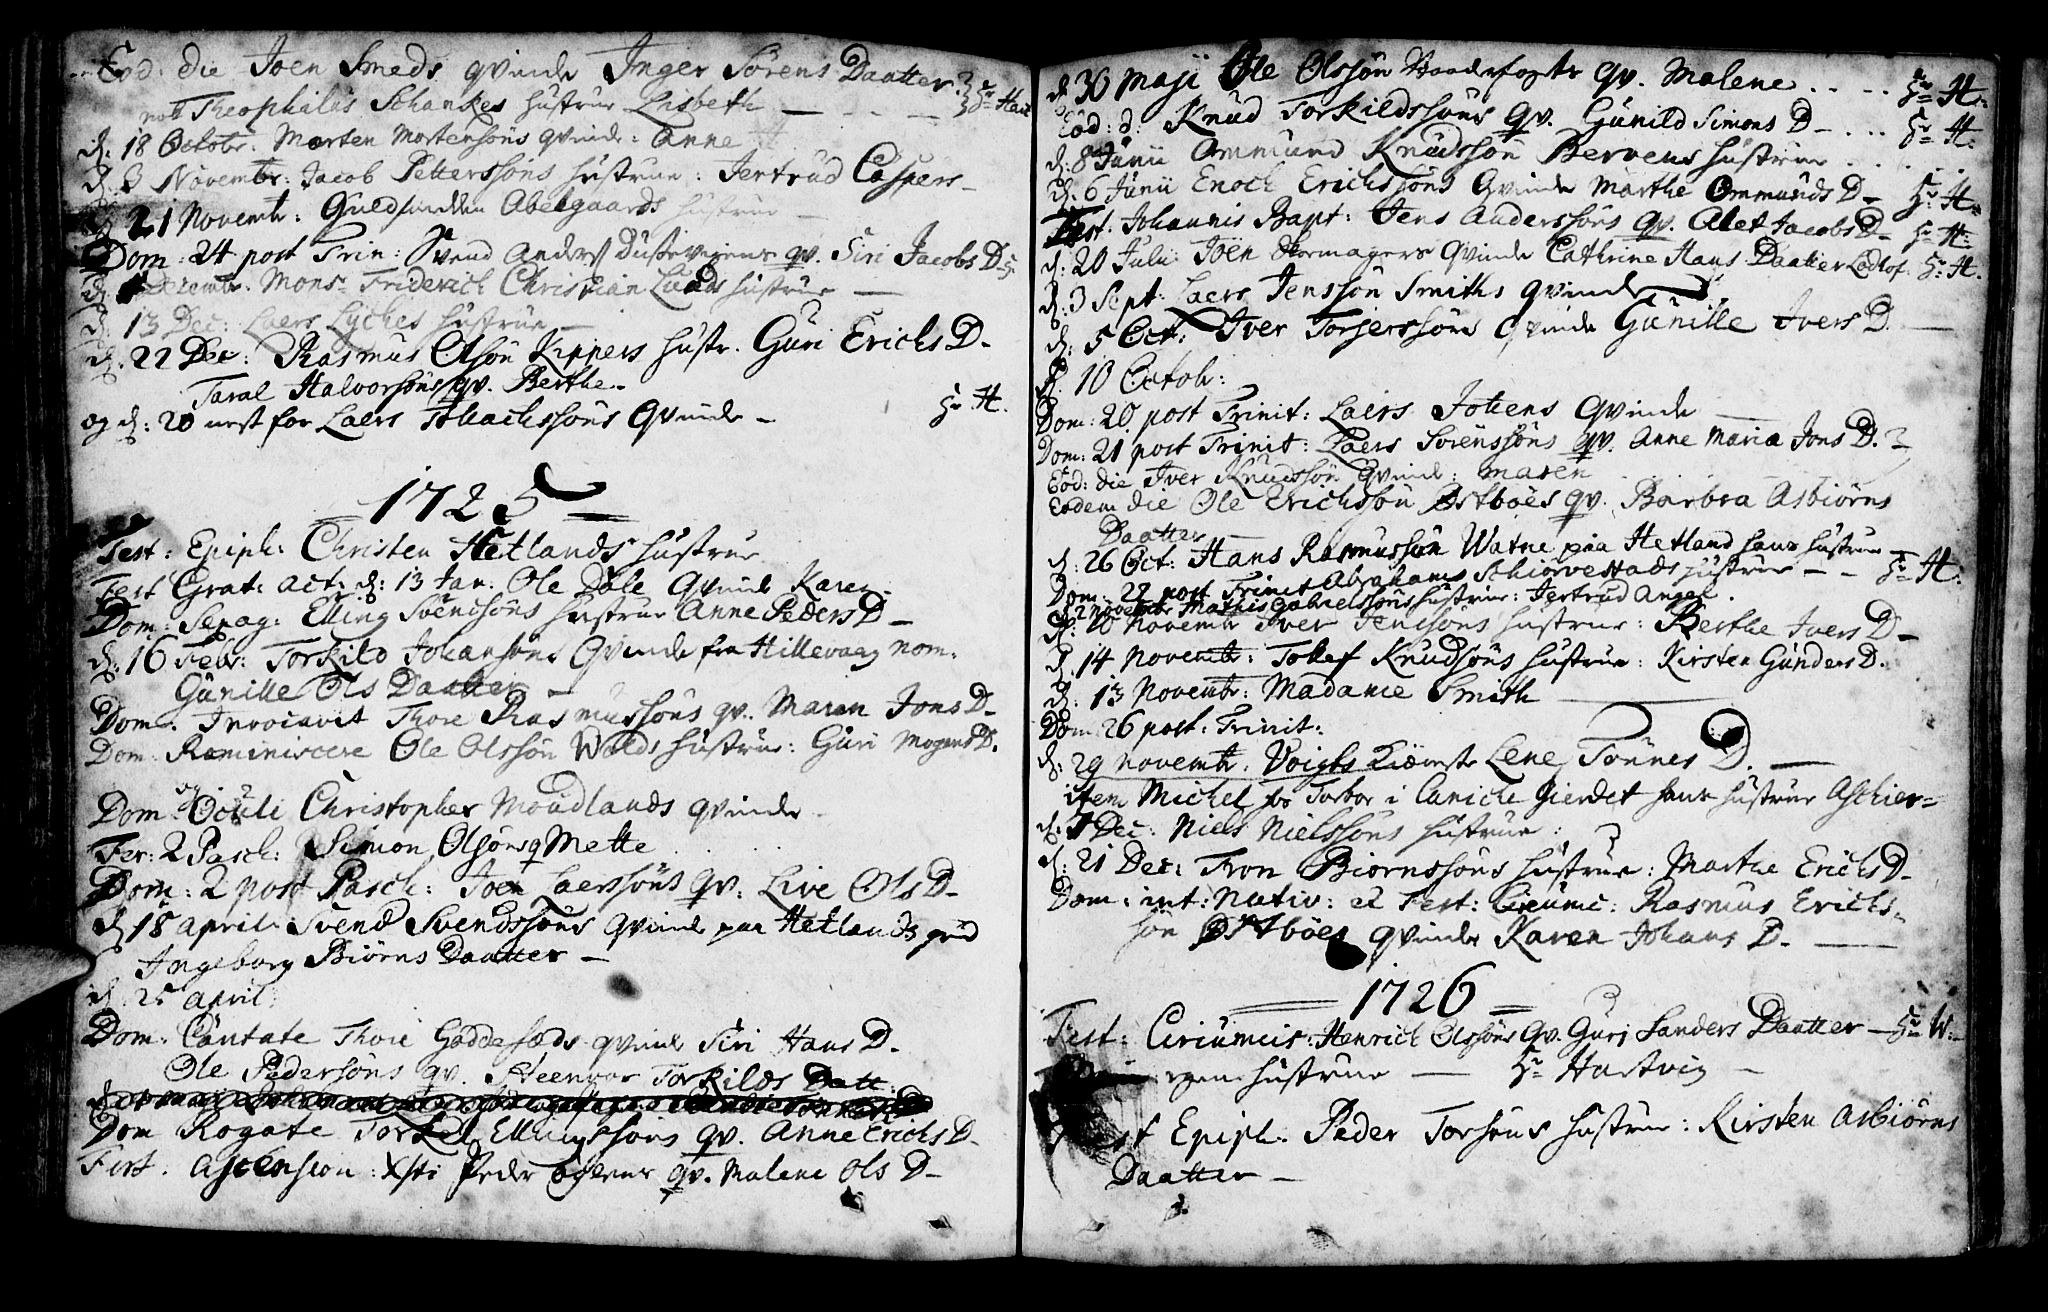 Eod: die Joen Smeds qvinde Inger Sörens Daatter
not Theophilus Schankes hustrue Lisbeth — Hr Hart
d. 18 Octobr: Morten Mortensöns qvinde: Anne
d. 3 Novembr: Jacob Petterssöns hustrue: Jertrud Caspers
d. 21 Novemb: Guldsmeden Abelgaards hustrue —
Dom: 24 post Trin: Svend Anders Dusevigens qv. Siri Jacobs D
d. Decembr. Mons. Friderich Christian Lunds hustrue —
d. 13 Dec: Laers Lyches hustrue —
d. 22 Dec: Rasmus Olsön Kippers hustr. Guri Erichs D.
Taral Halvorsöns qv. Berthe
og d: 20 nest for Laers Tollachssöns Qvinde — Hr H.
1725
Fest: Epiph: Christen Hetlands hustrue
Fest Grat: act: d: 13 Jan: Ole Dale Qvinde Karen
Dom: Sepag: Elling Svendsöns hustrue Anne Peders D
d: 16 Febr: Torkild Johansöns Qvinde fra Hillevaag nom:
Gunille Ols Daatter —
Dom. Invocavit Thore Rasmussöns qv. Maren Jons D
Dom. Reminiscere Ole Olssön Wolds hustrue: Guri Mogens D.
Dom Oculi Christopher Moudlands qvinde
Fer: 2 Pasch: Simon Olsöns q Mette
Dom: 2 post Pasch: Joen Laerssöns qv: Live Ols D
d 18 april: Svend Svendssöns Qvinde paa Hetland
Ingeborg Biörns Daatter —
d. 25 april:
Dom: Cantate Thore Goddesæds qvinde Siri Hans D.
Ole Pedersöns qv. Steenvor Torkilds Datt
Dom Rogate Torkel Ellingssöns qv. Anne Erichs D
Fest. Ascension: Xsti Peder qv. Malene Ols D
d 30 Maji Ole Olssön qv. Malene .... Hr H:
Eod: d: Knud Torkildssöns qv. Gunild Simons D .... Hr H.
d. 8 Junii Ommund Knudssön Bervens hustrue ....
d. 6 Junii Enoch Erichssöns Qvinde Marthe Ommunds D — Hr H.
Fest. Johannis Bapt: Jens Anderssöns qv. Alet Jacobs D — Hr H.
d: 20 Julii Joen Qvinde Cathrine Hans Daatter Hr H.
d: 3 Sept: Laers Jenssön Smiths qvinde
d: 5 Oct: Iver Torjerssöns Qvinde Gunille Ivers D. —
d. 10 Octob:
Dom: 20 post Trinit: Laers Johens Qvinde —
Dom: 21 post Trinit: Laers Sörenssöns qv. Anne Maria Jons D.
Eod: die Iver Knudssön Qvinde: Maren
Eodem die Ole Erichssön Östböes qv. Barbra Asbiörns
Daatter —
d. 26 Oct: Hans Rasmussön Watne paa Hetland hans hustrue — Hr H.
Dom: 22 post Trinit Abrahams Schiörvestads hustrue —
d. 2 Novembr Mathis Gabrielssöns hustrue: Jertrud Angel.
d: 10 Novembr Iver Jenssöns hustrue: Berthe Ivers D
d. 14 Novembr: Tollef Knudsöns hustrue: Kirsten Gunders D.
d: 13 Novembr: Madame Smith
Dom: 26 post: Trinit:
d: 29 Novembr: Voigts Lene Tönnes D. —
item Michel Torbor i hans hustrue
d. 7 Dec: Niels Nielssöns hustrue:
d: 21 Dec: Tron Biörnssöns hustrue: Marthe Erichs D
Dom: int: Nativ: et Fest: Circumc: Rasmus Erichs-
sön Östböes qvinde Karen Johans D. —
1726
Fest: Circumcis: Henrich Olssöns Qv. Guri Sanders Daatter — Hr W.
hustrue — Hr Hartvig —
Fest Epiph. Peder Torsöns hustrue: Kirsten Asbiörns
Daatter —